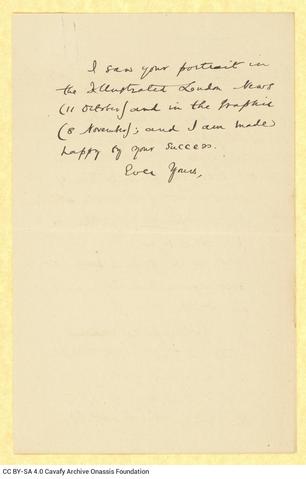 I saw your portrait in
the Illustrated London News
(11 October) and in the Graphic
(8 November); and I am made
happy by your success.
Ever Yours,
CC BY-SA 4.0 Cavafy Archive Onassis Foundation